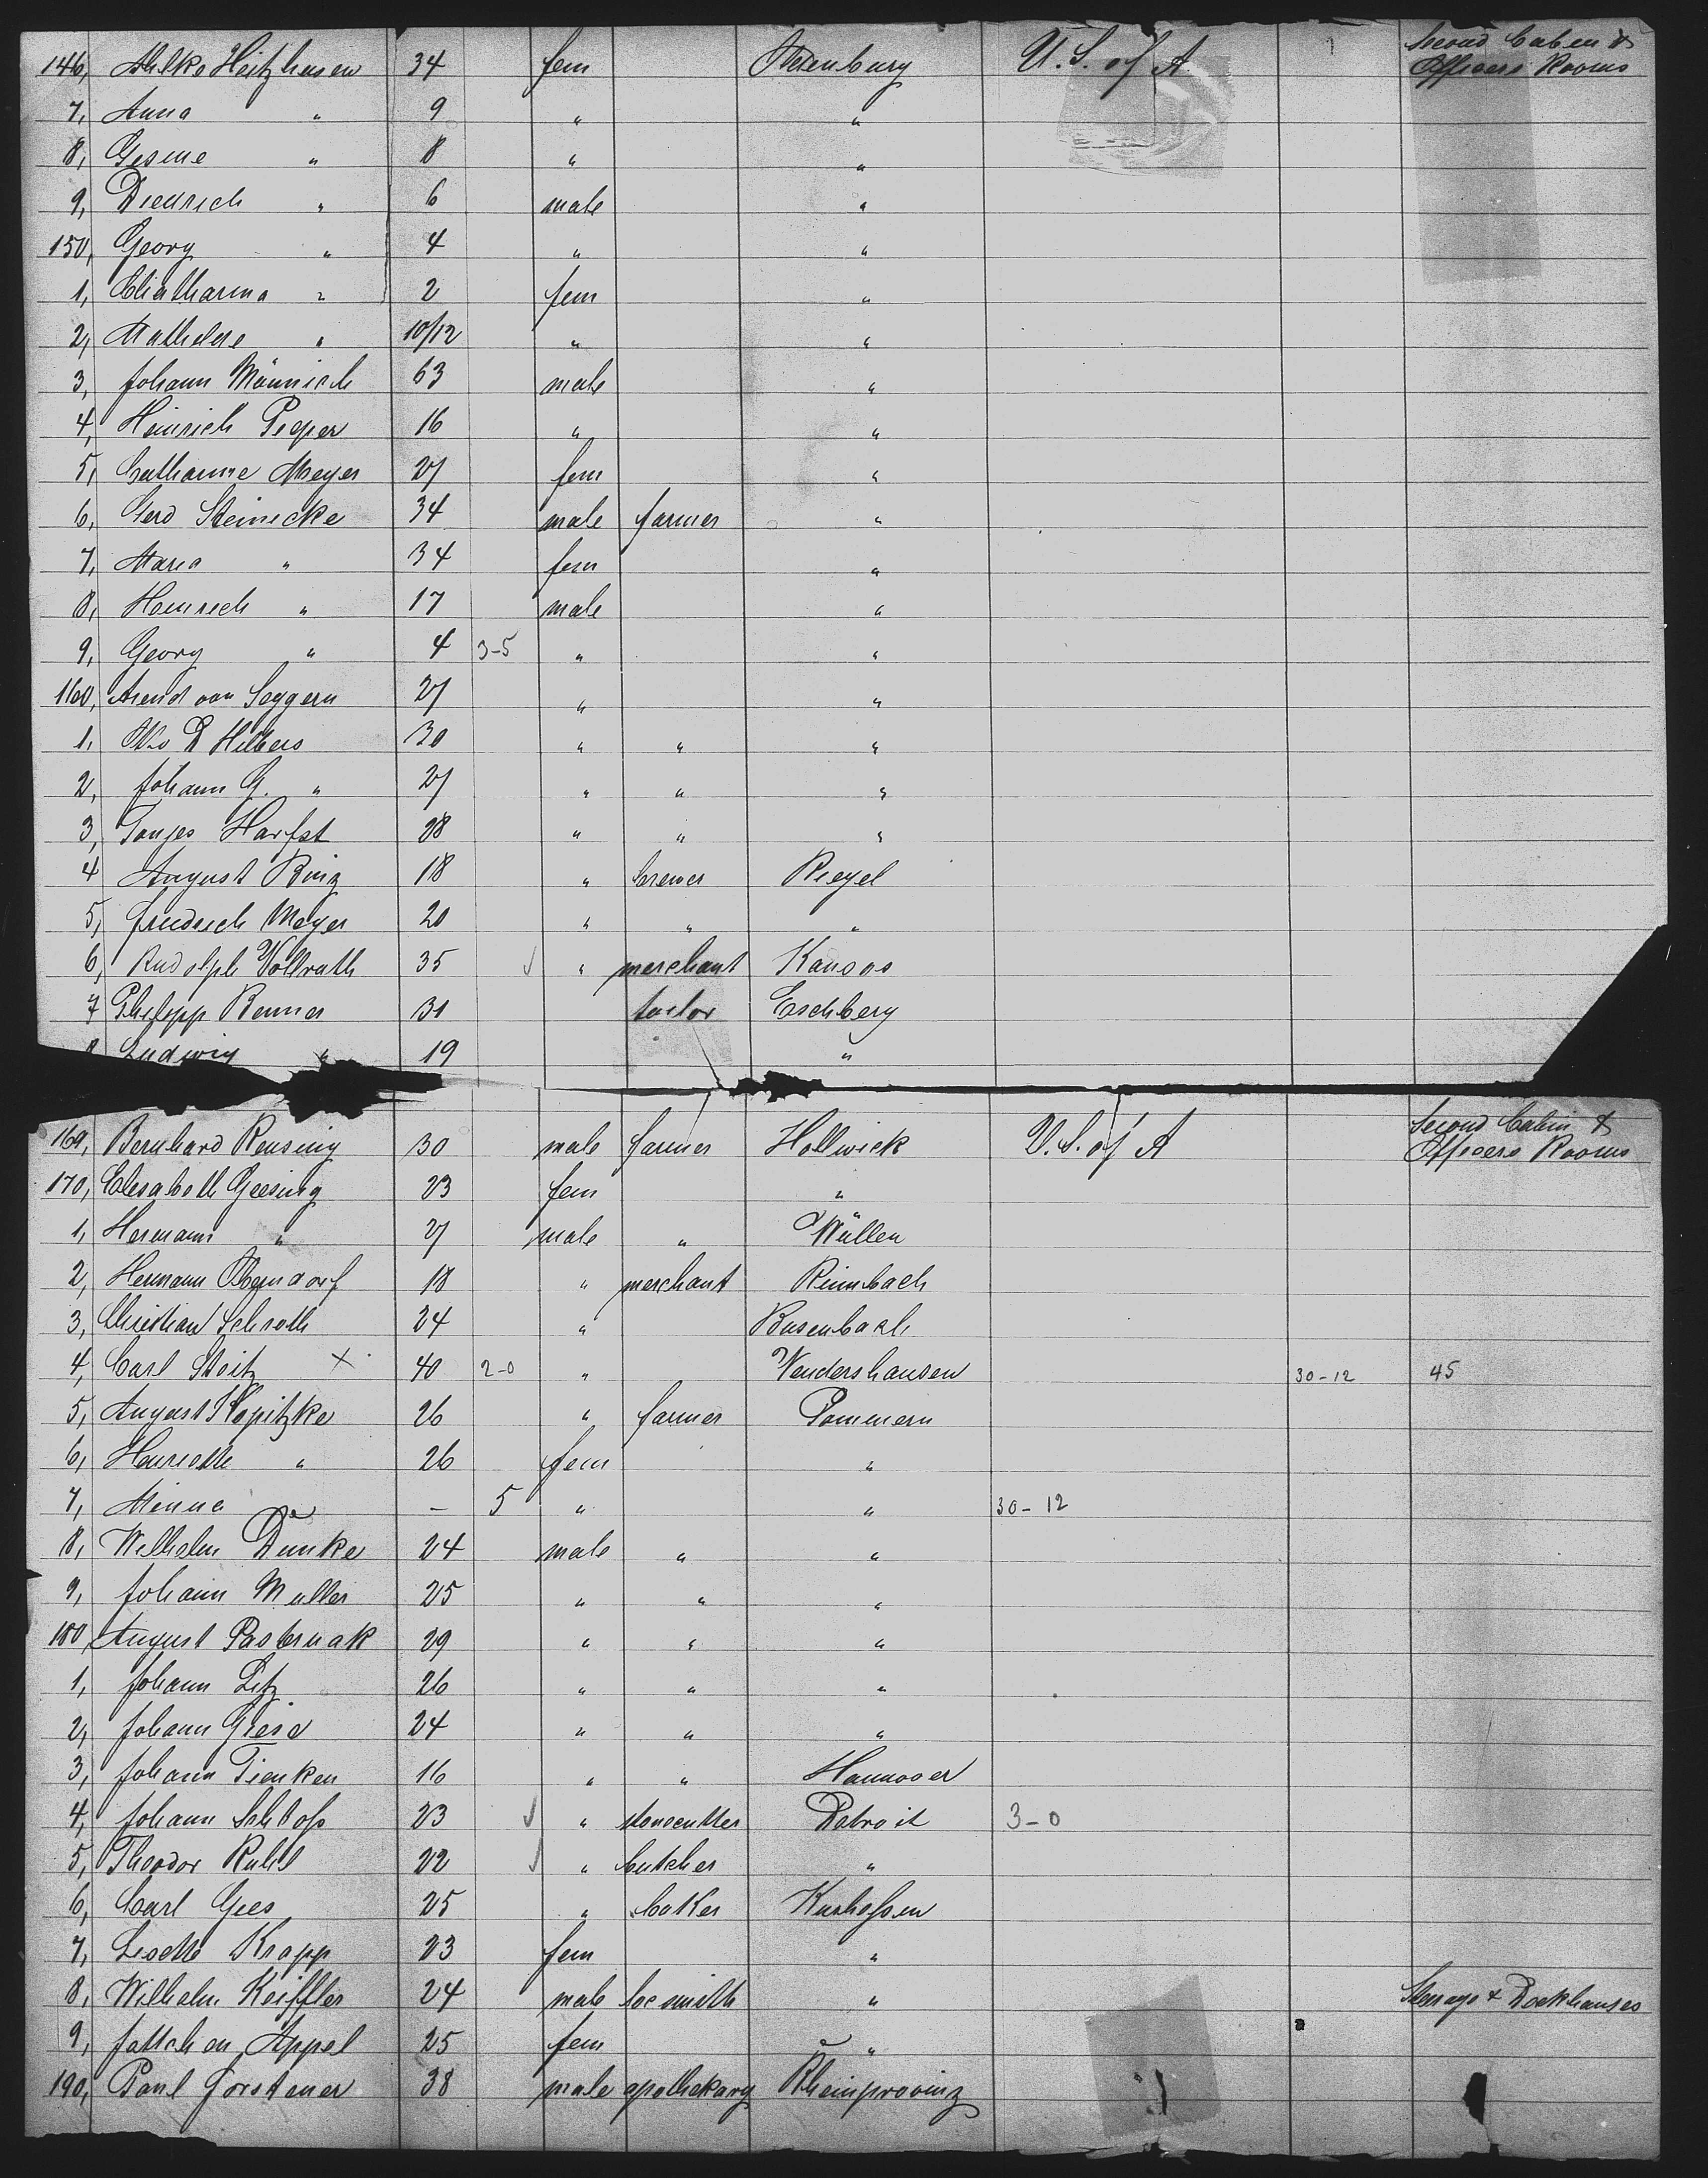 146, Heitzhusen 34 fem Oldenburg U. S. of A. Second Caben & Officers Rooms
7, Anna " 9 " "
8, Gesine " 8 " "
9, Diedrich " 6 male "
150, Georg " 4 " "
1, Chatharina " 2 fem "
2, Mathilde " 10/12 " "
3, Johann Männich 63 male "
4, Heinrich Pieper 16 " "
5, Catharine Meyer 27 fem "
6, Gerd Steinecke 34 male farmer "
7, Maria " 34 fem "
8, Heinrich " 17 male "
9, Georg " 4 3-5 " "
160, Arend von Seggern 27 " "
1, D Hilbers 30 " " "
2, Johann G. " 27 " " "
3, Tönjes Harfst 28 " " "
4 August Binz 18 " brewer Riegel
5, Friedrich Meyer 20 " " "
6, Rudolph Vollrath 35 " merchant Kansas
7 Philipp Benner 31 tailor Eschberg
8 Ludwig " 19 "
169, Bernhard Rensing 30 male farmer Hollwick U. S. of A Second Cabin & Officers Rooms
170, Elisabeth Geesing 23 fem "
1, Hermann " 27 male " Wüllen
2, Hermann 18 " merchant Rimbach
3, Christian Schroth 24 " Busenbach
4, Carl Stoitz X 40 2-0 " Vendershausen 30-12 45
5, August Kopitzke 26 " farmer Pommern
6, Henriette " 26 fem "
7, Minna " - 5 " " 30-12
8, Wilhelm Dumke 24 male " "
9, Johann Muller 25 " " "
180, August Pasternak 29 " " "
1, Johann Litz 26 " " "
2, Johann Giese 24 " " "
3, Johann Tienken 16 " " Hannover
4, Johann Schloss 23 " stonecutter Detroit 3-0
5, Theodor Ruhl 22 " butcher "
6, Carl Gies 25 " baker Kurhessen
7, Lisette Krapp 23 fem "
8, Wilhelm Keiffler 24 male locsmith " Sterage & Deckhauses
9, Jettchen Appel 25 fem "
190, Paul Forstener 38 male apothekary Rheinprovinz